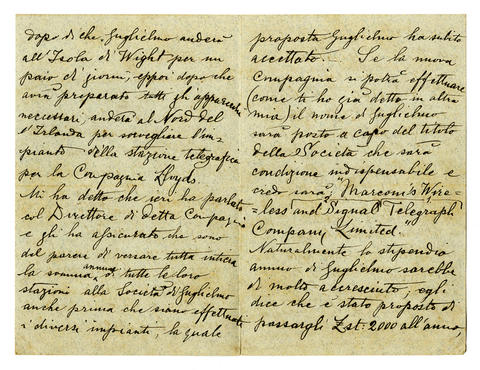 Dopo di che, Guglielmo anderà
all'Isola di Wight per un
paio di giorni, eppoi dopo che
avrà preparato tutti gli apparecchi
necessari, anderà al Nord del
l'Irlanda per sorvegliare l'im-
pianto della stazione telegrafica
per la Compagnia Lloyds.
Mi ha detto che ieri ha parlato
col Direttore di detta Compagnia
e gli ha assicurato che sono
del parere di versare tutta intiera
la somma annua di tutte le loro
stazioni alla Società di Guglielmo
anche prima che siano effettuati
i diversi impianti, la quale
proposta Guglielmo ha subito
accettato. Se la nuova
Compagnia si potrà effettuare
(come ti ho già detto in altra
mia) il nome di Guglielmo
sarà posto a capo del titolo
della Società che sarà
condizione indispensabile e
credo sarà, "Marconi's Wire-
=less and Signal Telegraph
Company, Limited."
Naturalmente lo stipendio
annuo di Guglielmo sarebbe
di molto accresciuto; egli
dice che è stato proposto di
passargli Lst. 2000 all'anno,